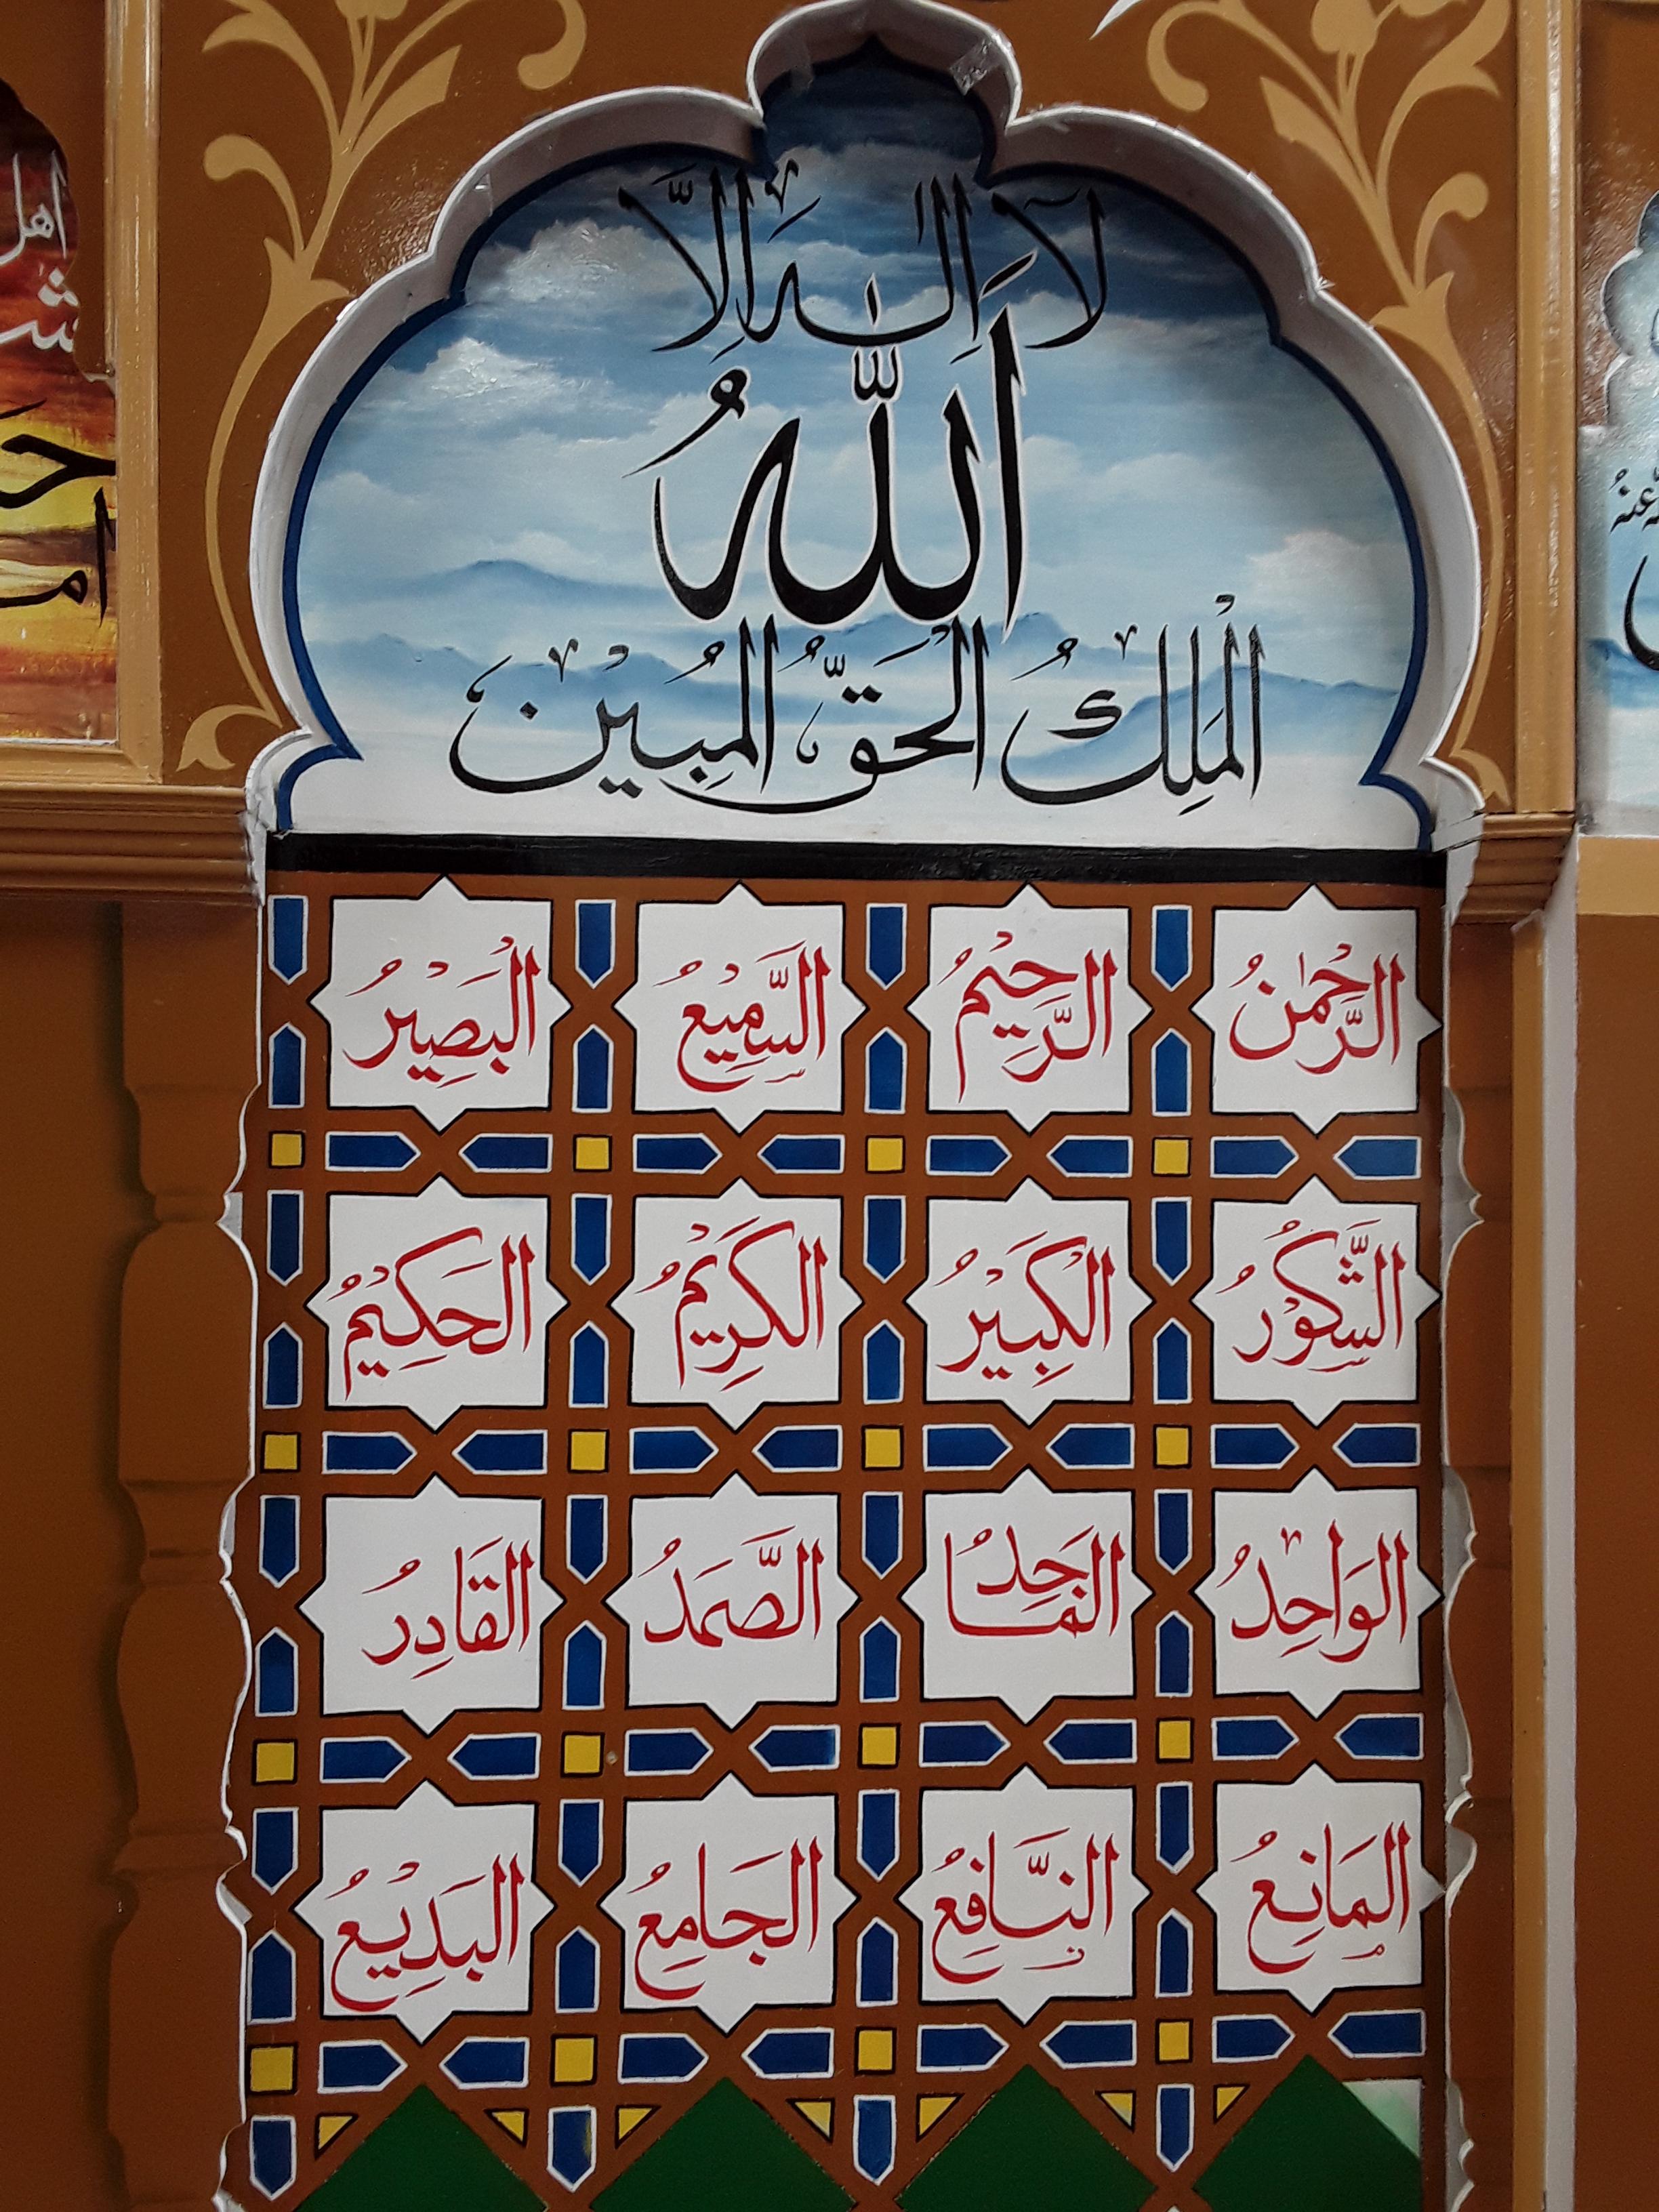 لَا اِلٰهَ اِلَّا
اَللّٰهُ
الْمَلِكُ الْحَقُّ الْمُبِيْن
الرَّحْمٰنُ الرَّحِيْمُ السَّمِيْعُ الْبَصِيْرُ
الشَّكُوْرُ الْكَبِيْرُ الْكَرِيْمُ الْحَكِيْمُ
الوَاحِدُ المَاجِدُ الصَّمَدُ القَادِرُ
المَانِعُ النَّافِعُ الجَامِعُ البَدِيْعُ
اهل
عنهُ